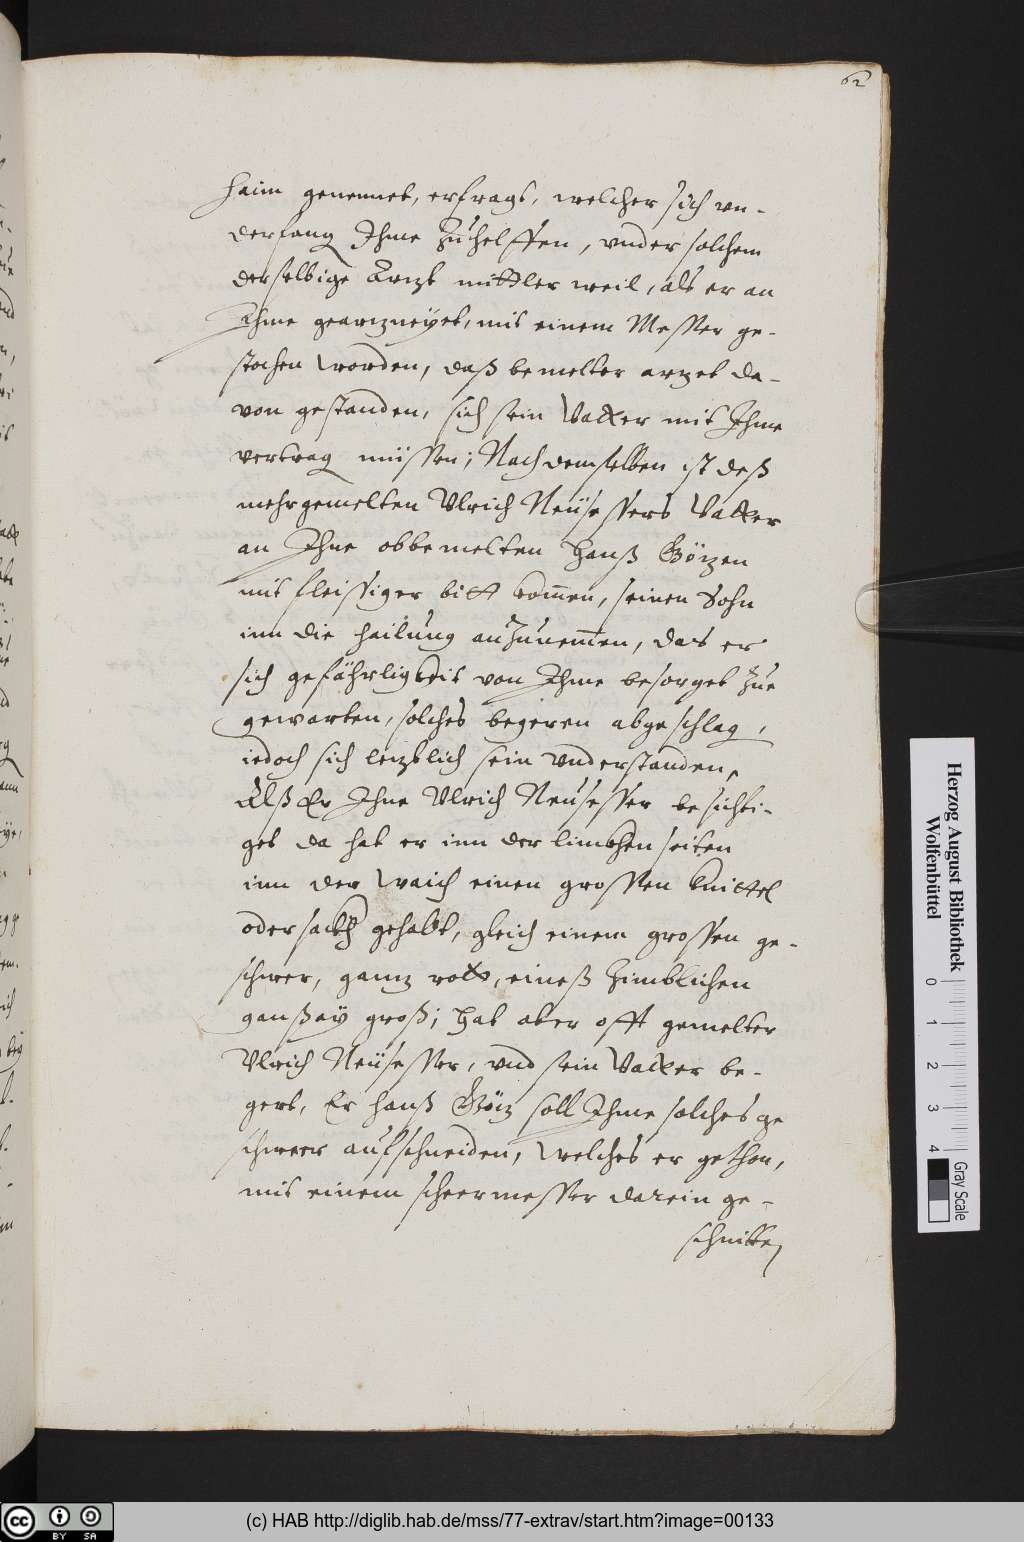 62
haim genennet, erfragt, welcher sich vn-
derfang Ihme Zuhelffen, vnder solchem
derselbige Artzt mittler weil, als er an
Ihme geartzneÿet, mit einem Messer ge-
stochen worden, daß bemelter artzet da-
von gestanden, sich sein Vatter mit Ihme
vertrag müssen; Nach demselben ist deß
mehrgemelten Vlrich Neüsessers Vatter
an Ihne obbemelten Hanß Götzen
mit fleissiger bitt kom̄en, seinen Sohn
inn die hailung anZunem̄en, das er
sich gefährligkeit von Ihme besorget Zue
gewarten, solches begeren abgeschlag,
iedoch sich letztlich sein vnderstanden,
Alß Er Ihne Vlrich Neusesser besichti-
get da hat er inn der linckhen seiten
inn der waich einen grossen knittel
oder sackh gehabt, gleich einem grossen ge-
schwer, gantz rott, eineß Zimblichen
ganßaÿ groß; Hat aber offt gemelter
Vlrich Neüsesser, vnd sein Vatter be-
gert, Er Hanß Götz soll Ihme solches ge
schweer aufschneiden, welches er gethon,
mit einem scheermesser darein ge-
schnitten
Herzog August Bibliothek
Wolfenbüttel
0 1 2 3 4
Gray Scale
cc BY SA
(c) HAB http://diglib.hab.de/mss/77-extrav/start.htm?image=00133